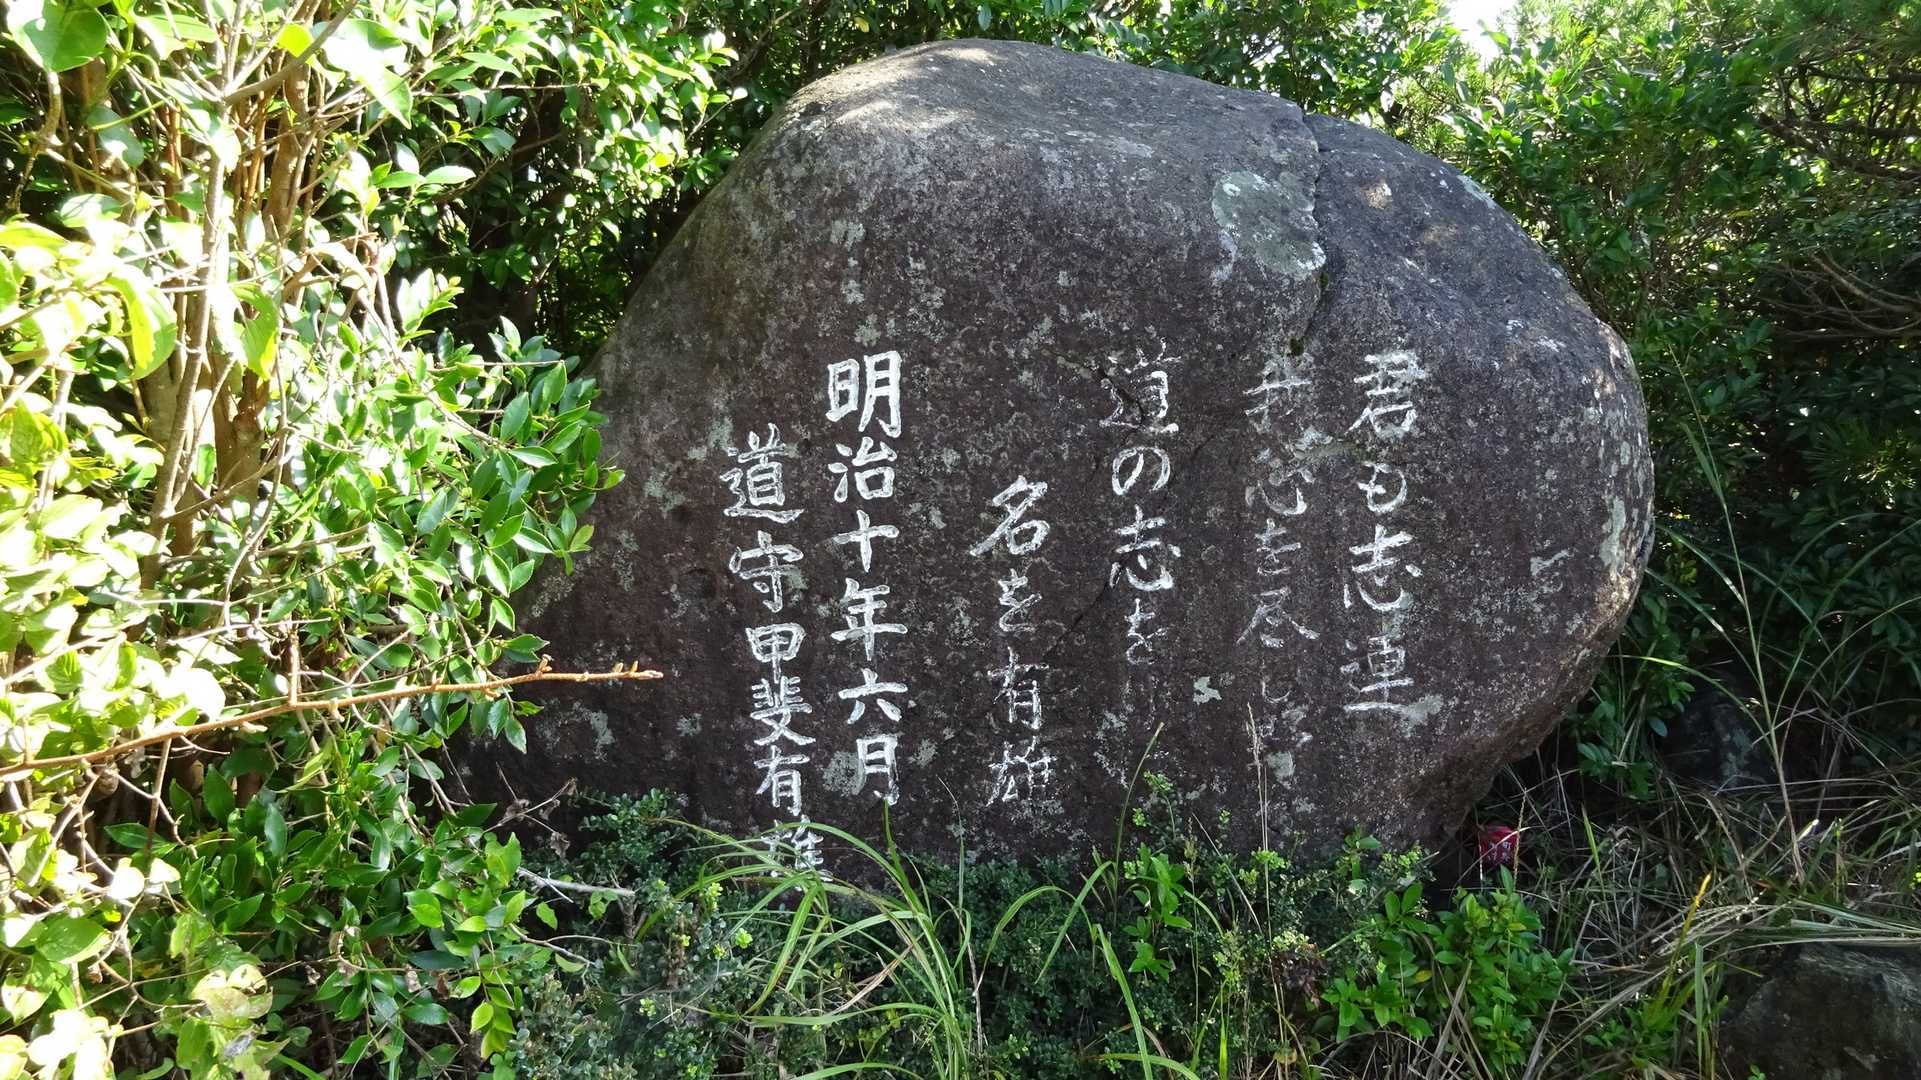 君も志運
我心を尽し
道の志を
名を有雄
明治十年六月
道守甲斐有雄